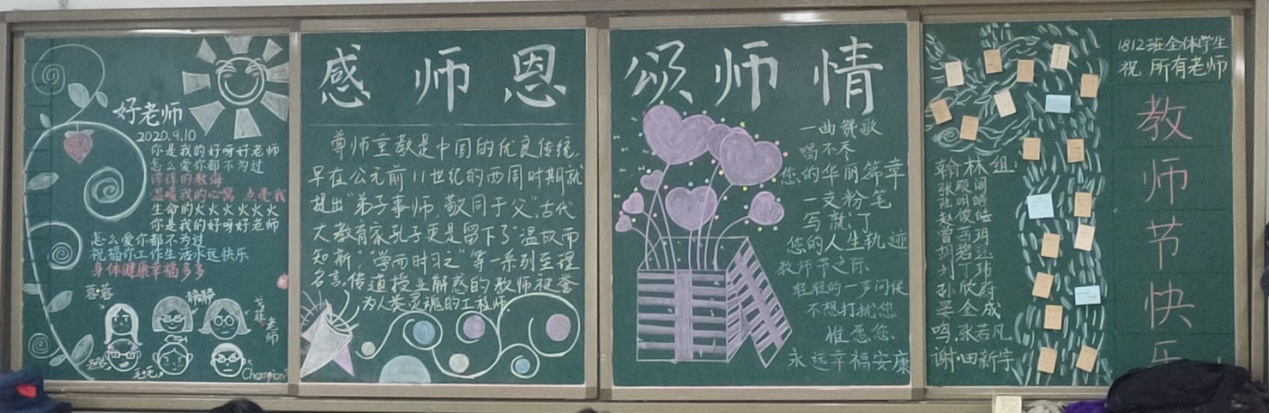 好老师
2020.9.10
你是我的好呀好老师
怎么爱你都不为过
谆谆的教诲
温暖我的心窝 点亮我
生命的火火火火火火
你是我的好呀好老师
怎么爱你都不为过
祝福你工作生活永远快乐
身体健康幸福多多
蓉蓉
静静
菲菲
老师
元元
Champion
感 师 恩
尊师重教是中国的优良传统,
早在公元前11世纪的西周时期就
提出"弟子事师,敬同于父",古代
大教育家孔子更是留下了"温故而
知新""学而时习之"等一系列至理
名言,传道授业解惑的教师被誉
为人类灵魂的工程师.
颂 师 情
一曲舞歌
唱不尽
您的华丽篇章
一支粉笔
写就了
您的人生轨迹
教师节之际
轻轻的一声问候
不想打扰您
惟愿您
永远幸福安康
翰林组:
鸣,张若凡
谢,田新宇
1812班全体学生
祝 所有老师
教
师
节
快
乐